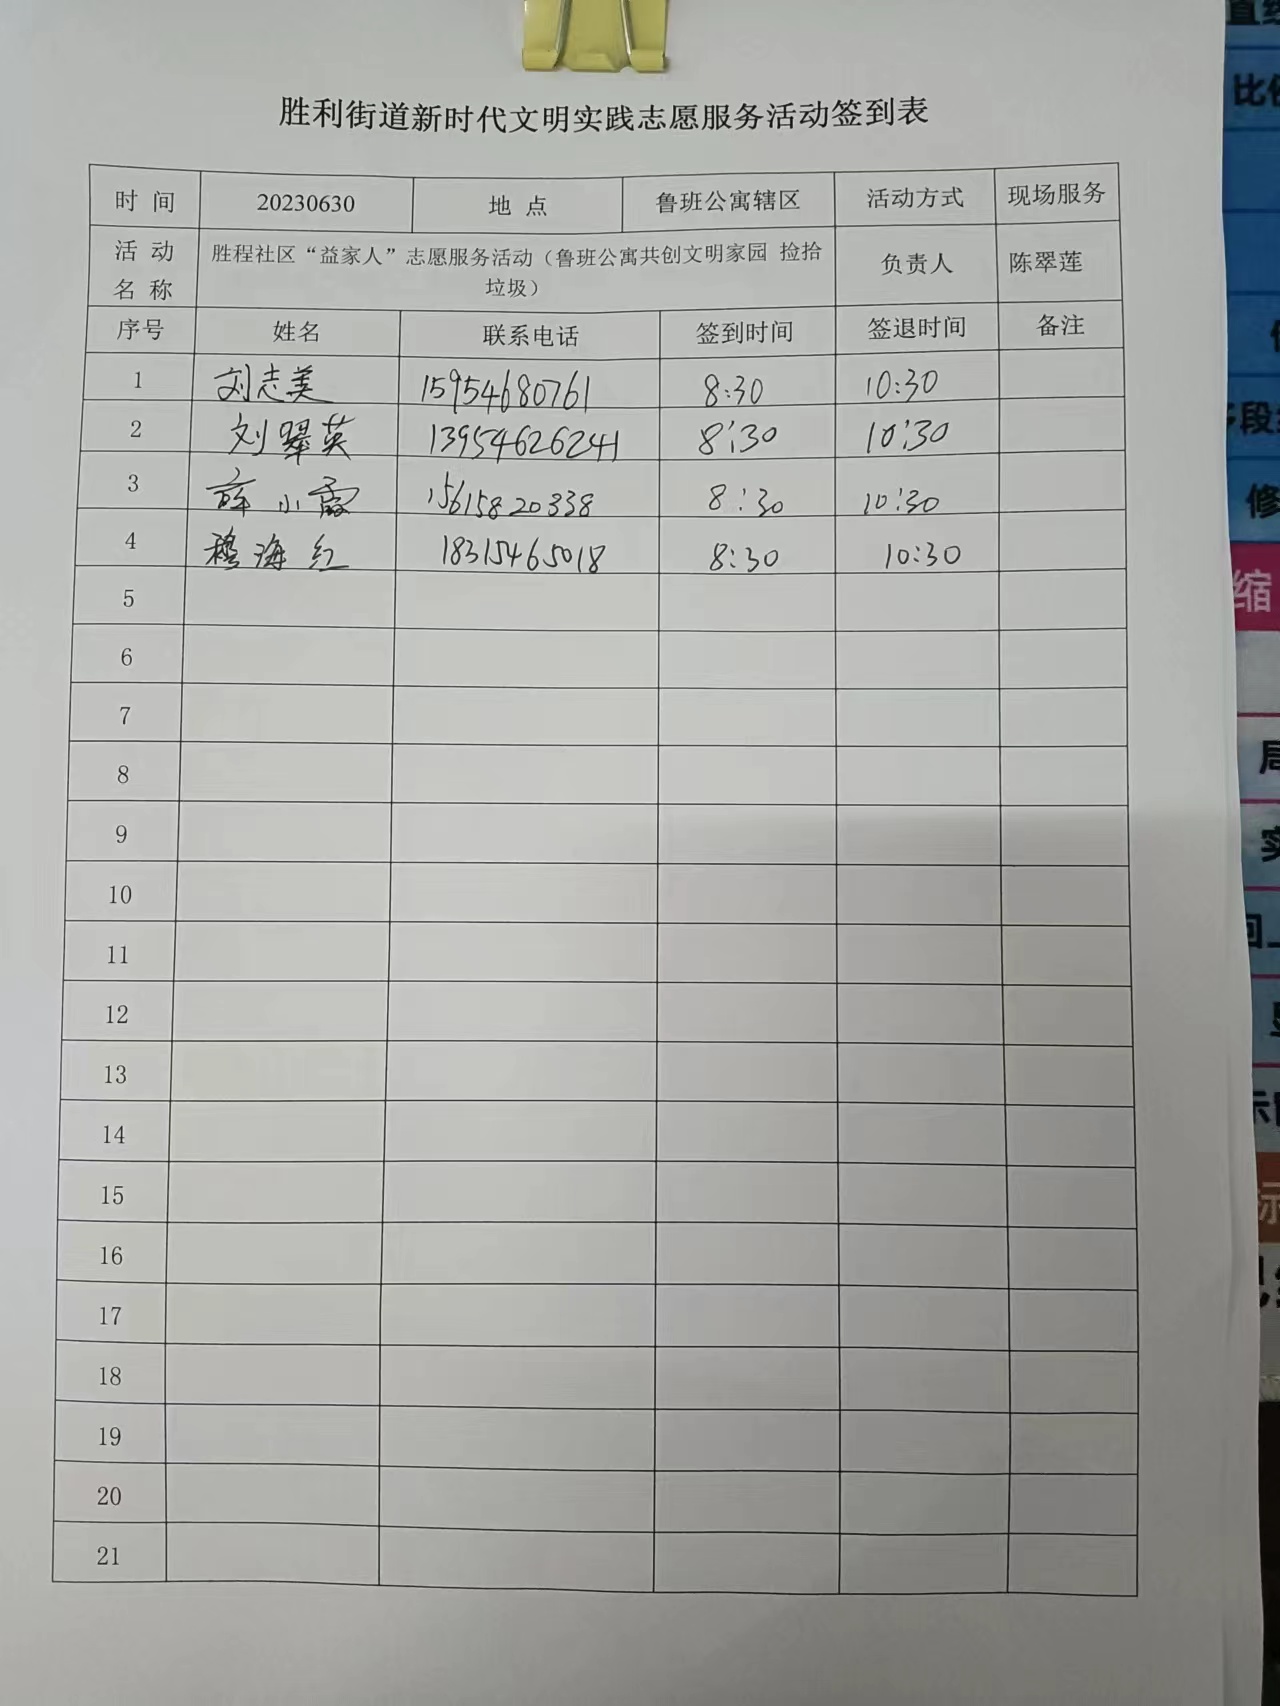 胜利街道新时代文明实践志愿服务活动签到表
时 间 20230630 地 点 鲁班公寓辖区 活动方式 现场服务
活 动 名 称 胜程社区“益家人”志愿服务活动（鲁班公寓共创文明家园 捡拾垃圾） 负责人 陈翠莲
序号 姓名 联系电话 签到时间 签退时间 备注
1 刘志美 15954680761 8:30 10:30
2 刘翠英 13954626241 8:30 10:30
3 薛小霞 15615820338 8:30 10:30
4 穆海红 18315465018 8:30 10:30
5
6
7
8
9
10
11
12
13
14
15
16
17
18
19
20
21
缩
修